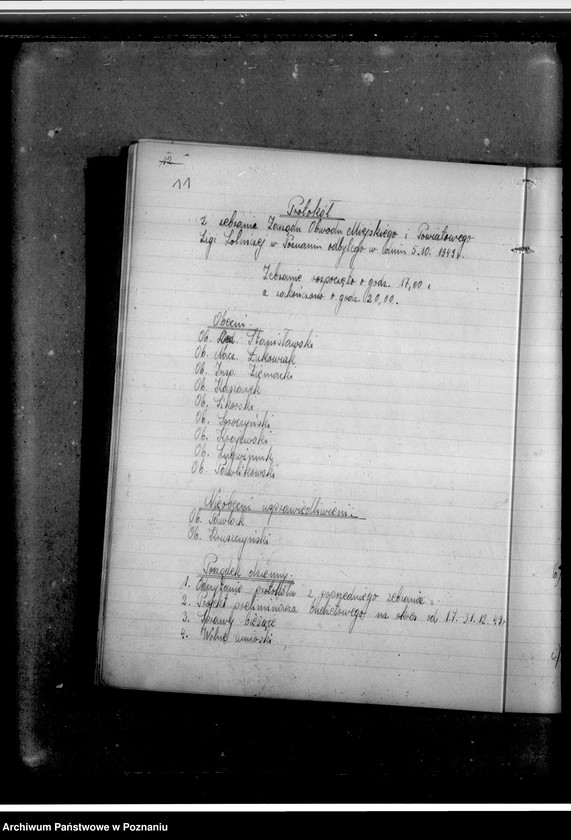 12
11
Protokół
z zebrania Zarządu Obwodu Miejskiego i Powiatowego
Ligi Lotniczej w Poznaniu odbytego w dniu 5.10.1949 r.
Zebranie rozpoczęto o godz. 17,00.
a zakończono o godz. 20,00.
Obecni.
Ob. Stanisławski
Ob. Nacz. Łukowiak
Ob. Insp. Ziemacki
Ob. Kasprzak
Ob. Sikorski
Ob. Skoczyński
Ob. Krajewski
Ob.
Ob. Pawlikowski
Nieobecni usprawiedliwieni:
Ob. Pawlak
Ob. Kruszczyński
Porządek dzienny.
1. Odczytanie protokółu z poprzedniego zebrania.
2. Projekt preliminarza budżetowego na okres od 1.7. 31.12.49 r
3. Sprawy bieżące
4. Wolne wnioski
Archiwum Państwowe w Poznaniu